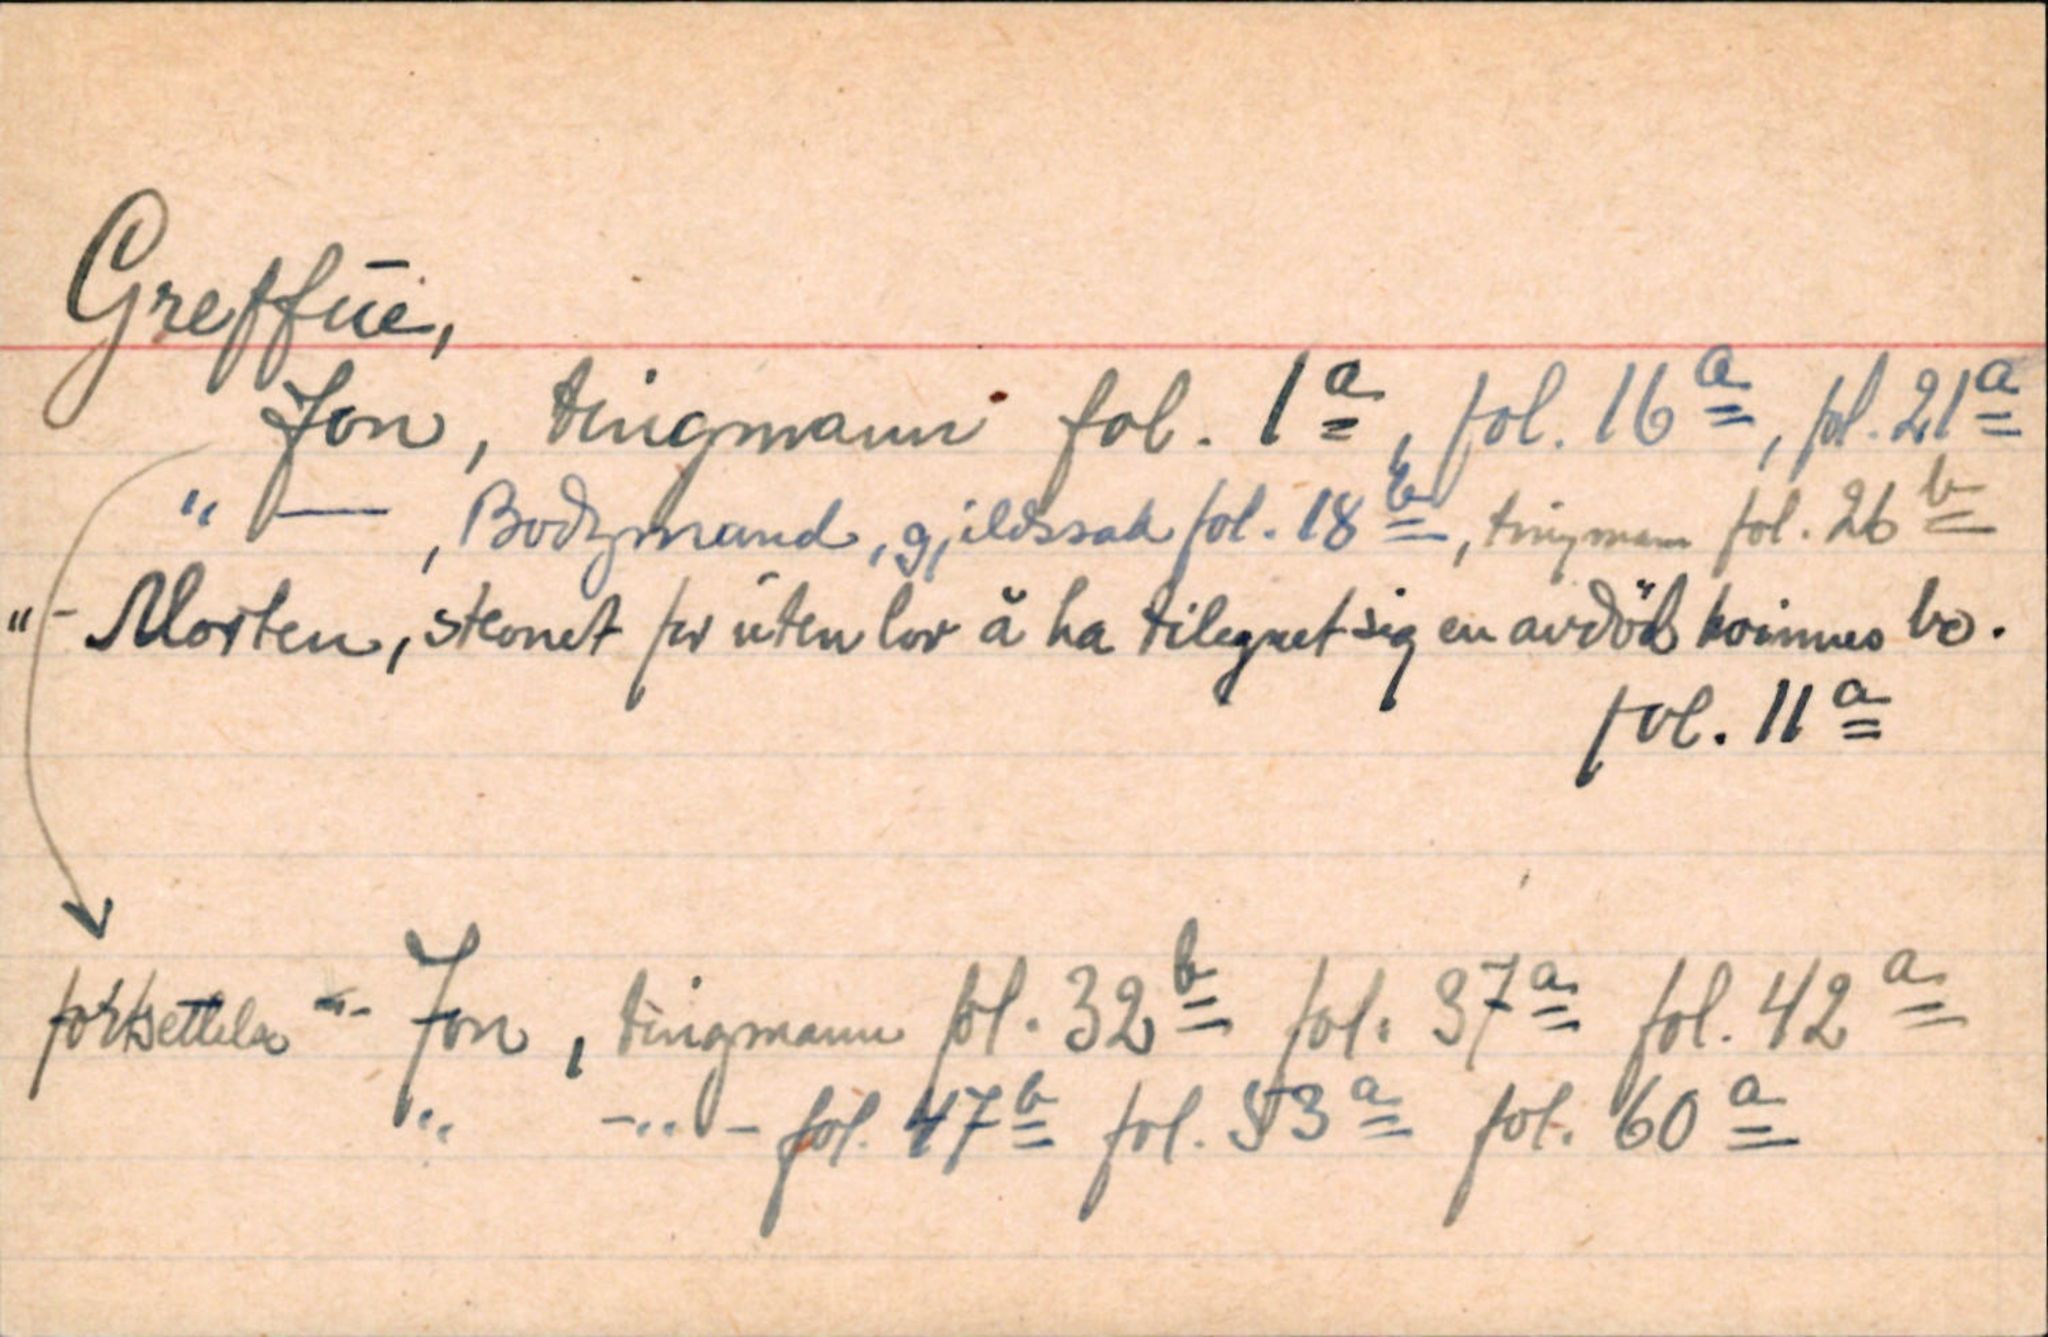 Greffue,
Jon, tingmann fol. 1a, fol. 16a, fol. 21a
" — , Bodzmand, gjeldssak fol. 18b, tingmann fol. 26b
"- Morten, stevnet for uten lov å ha tilegnet sig en avdød kvinnes bo.
fol. 11a
fortsettelse "- Jon, tingmann fol. 32b fol. 37a fol. 42a
" -"- fol. 47b fol. 53a fol. 60a